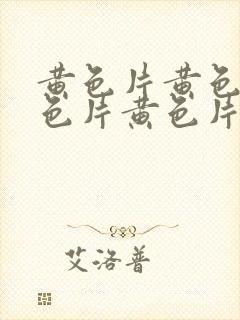 黄色片黄色
色片黄色片
艾洛普